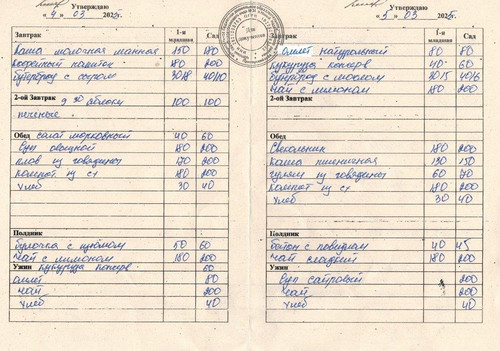 Утверждаю
« 4 » 03 2025г.
Завтрак 1-я младшая Сад
каша молочная манная 150 180
кофейный напиток 180 200
бутерброд с сыром 30/8 40/10
2-ой Завтрак яблоки 100 100
печеные
Обед салат морковный 40 60
суп овощной 180 200
плов из говядины 170 200
компот из с/х 180 200
хлеб 30 40
Полдник
булочка с 50 60
чай с лимоном 180 200
Ужин кукуруза консерв 60
омлет 80
чай 200
хлеб 40
Утверждаю
« 5 » 03 2025г.
Завтрак 1-я младшая Сад
Омлет натуральный 80 80
кукуруза консерв 40 60
бутерброд с маслом 30/5 40/6
чай с лимоном 180 200
2-ой Завтрак
Обед
Свекольник 180 200
каша пшеничная 130 150
гуляш из говядины 60 70
компот из с/х 180 200
хлеб 30 40
Полдник
батон с повидлом 40 45
чай сладкий 180 200
Ужин
суп 200
чай 200
хлеб 40